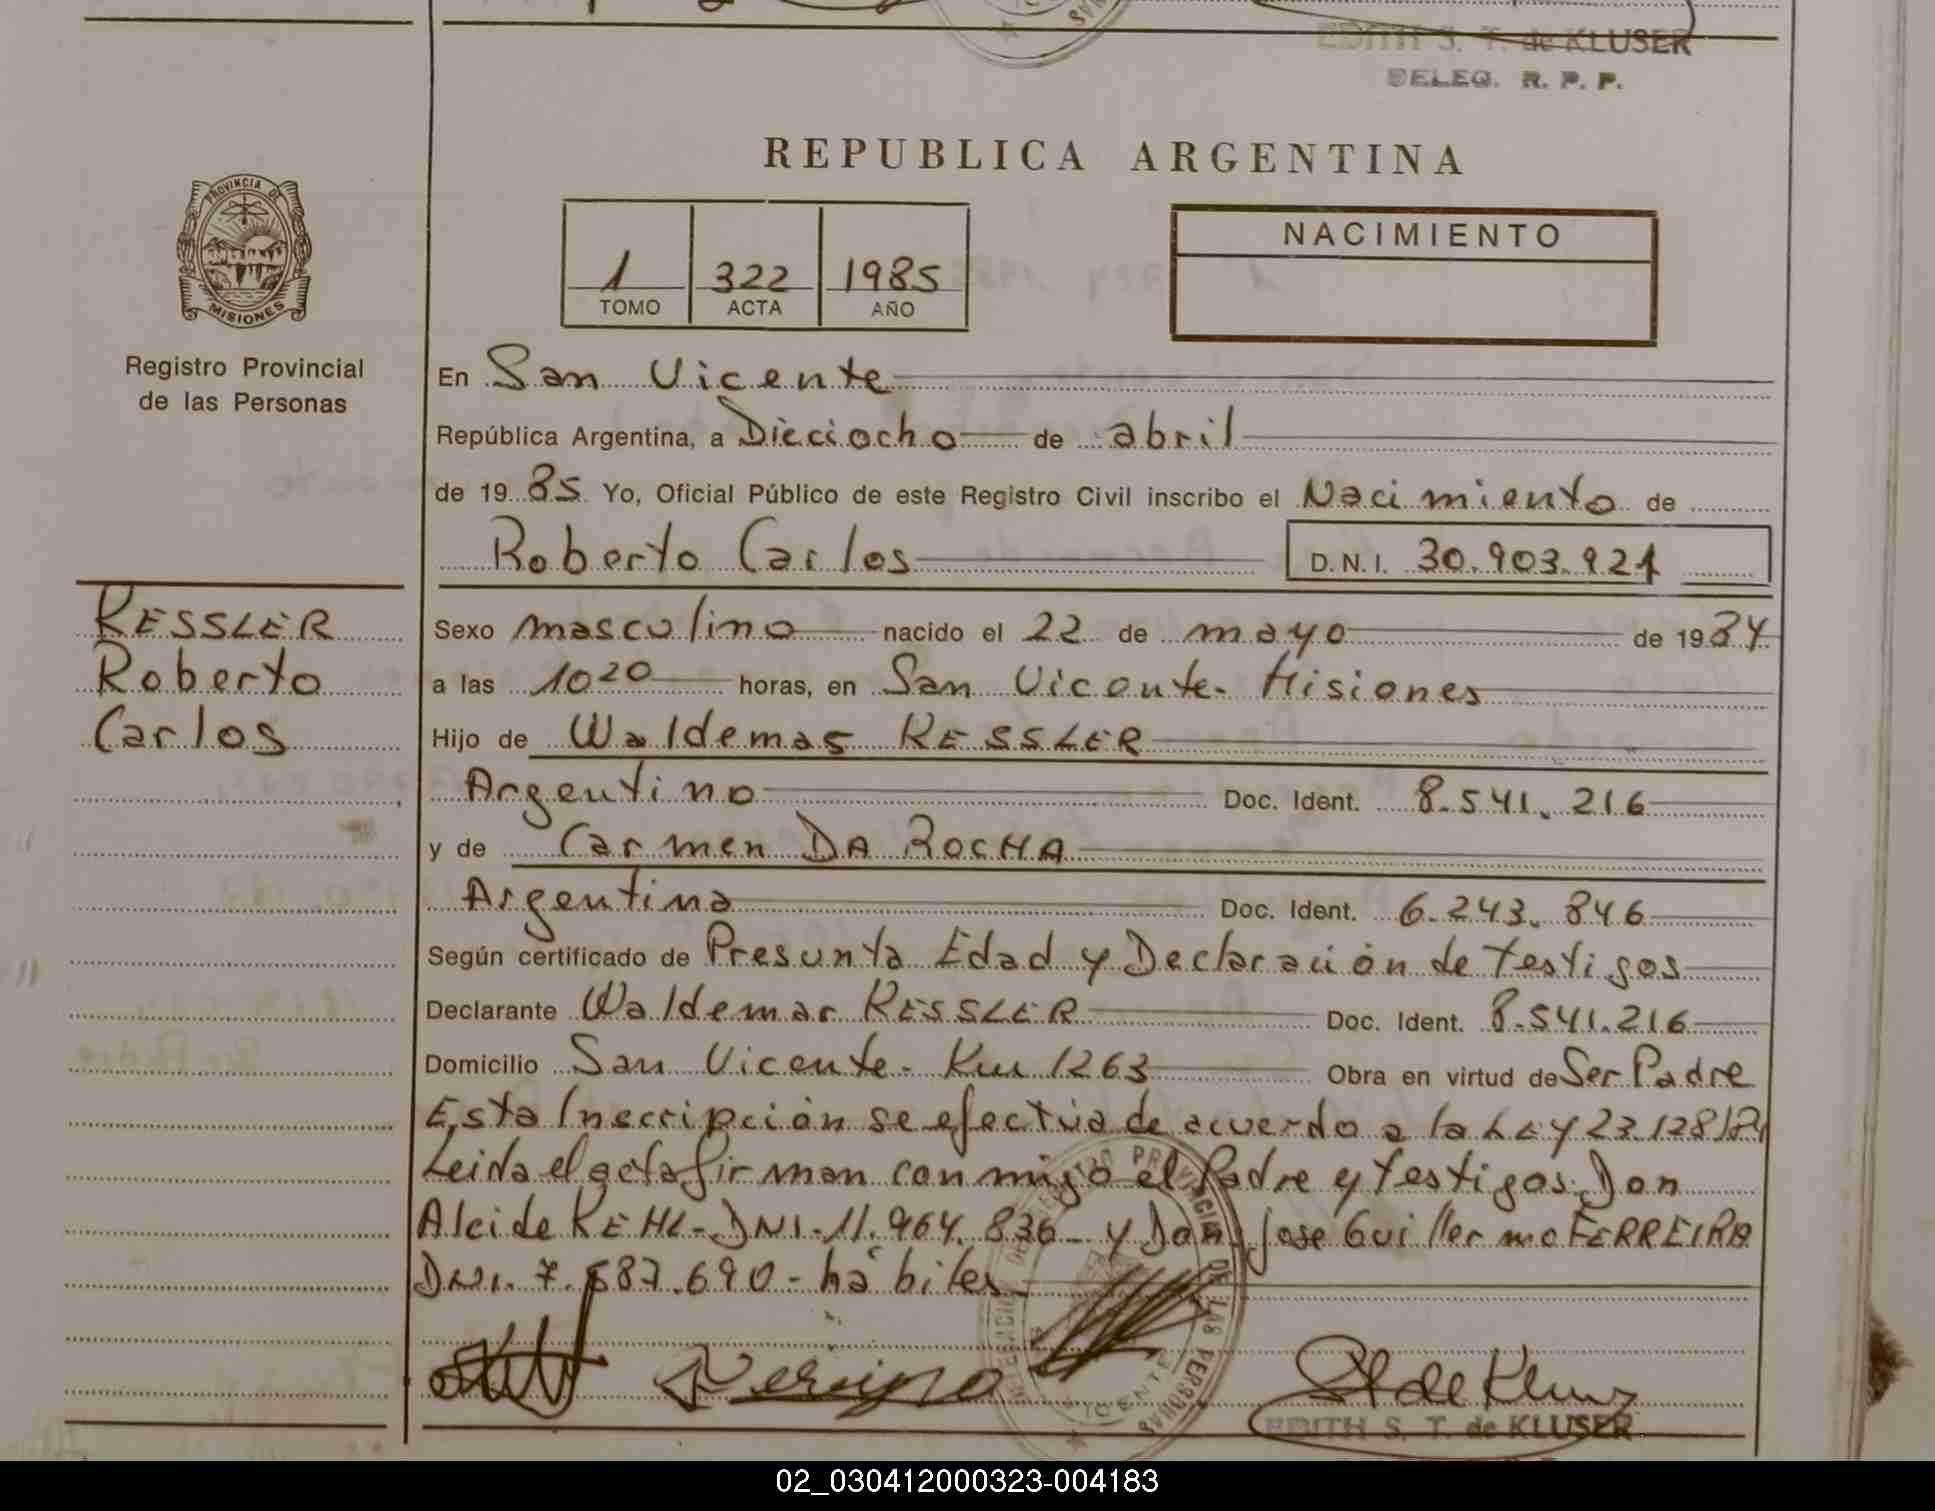 EDITH S. T. de KLUSER
DELEG. R. P. P.
REPUBLICA ARGENTINA
PROVINCIA DE
MISIONES
Registro Provincial
de las Personas
1 322 1985
TOMO ACTA AÑO
NACIMIENTO
En San Vicente
República Argentina, a Dieciocho de abril
de 19 85 Yo, Oficial Público de este Registro Civil inscribo el Nacimiento de
Roberto Carlos D.N.I. 30.903.921
KESSLER
Roberto
Carlos
Sexo masculino nacido el 22 de mayo de 1984
a las 10 20 horas, en San Vicente - Misiones
Hijo de Waldemar KESSLER
Argentino Doc. Ident. 8.541.216
y de Carmen DA ROCHA
Argentina Doc. Ident. 6.243.846
Según certificado de Presunta Edad y Declaración de testigos
Declarante Waldemar KESSLER Doc. Ident. 8.541.216
Domicilio San Vicente - Km 1263 Obra en virtud de Ser Padre
Esta Inscripción se efectúa de acuerdo a la LEY 23.128/84
Leida el acta firman conmigo el Padre y testigos Don
Alcide KEHL - DNI - 11.964.836 - y Don Jose Guillermo FERREIRA
DNI. 7.687.690 - hábiles
EDITH S. T. de KLUSER
02_030412000323-004183